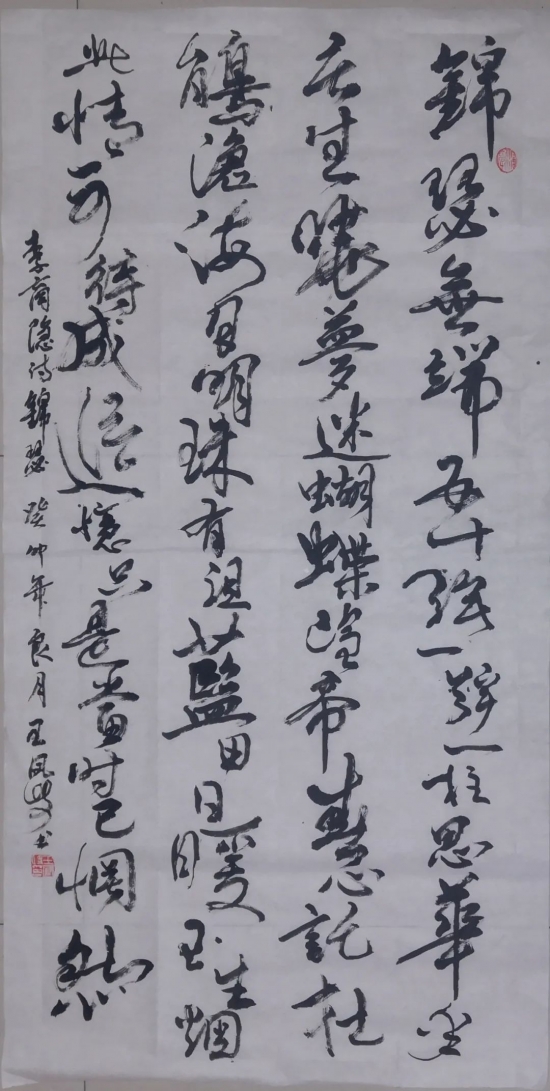 錦瑟無端五十弦一弦一柱思華年
庄生曉夢迷蝴蝶望帝春心託杜
鵑滄海月明珠有泪藍田日暖玉生烟
此情可待成追憶只是當时已惘然
李商隐诗錦瑟 癸卯年良月王凤书